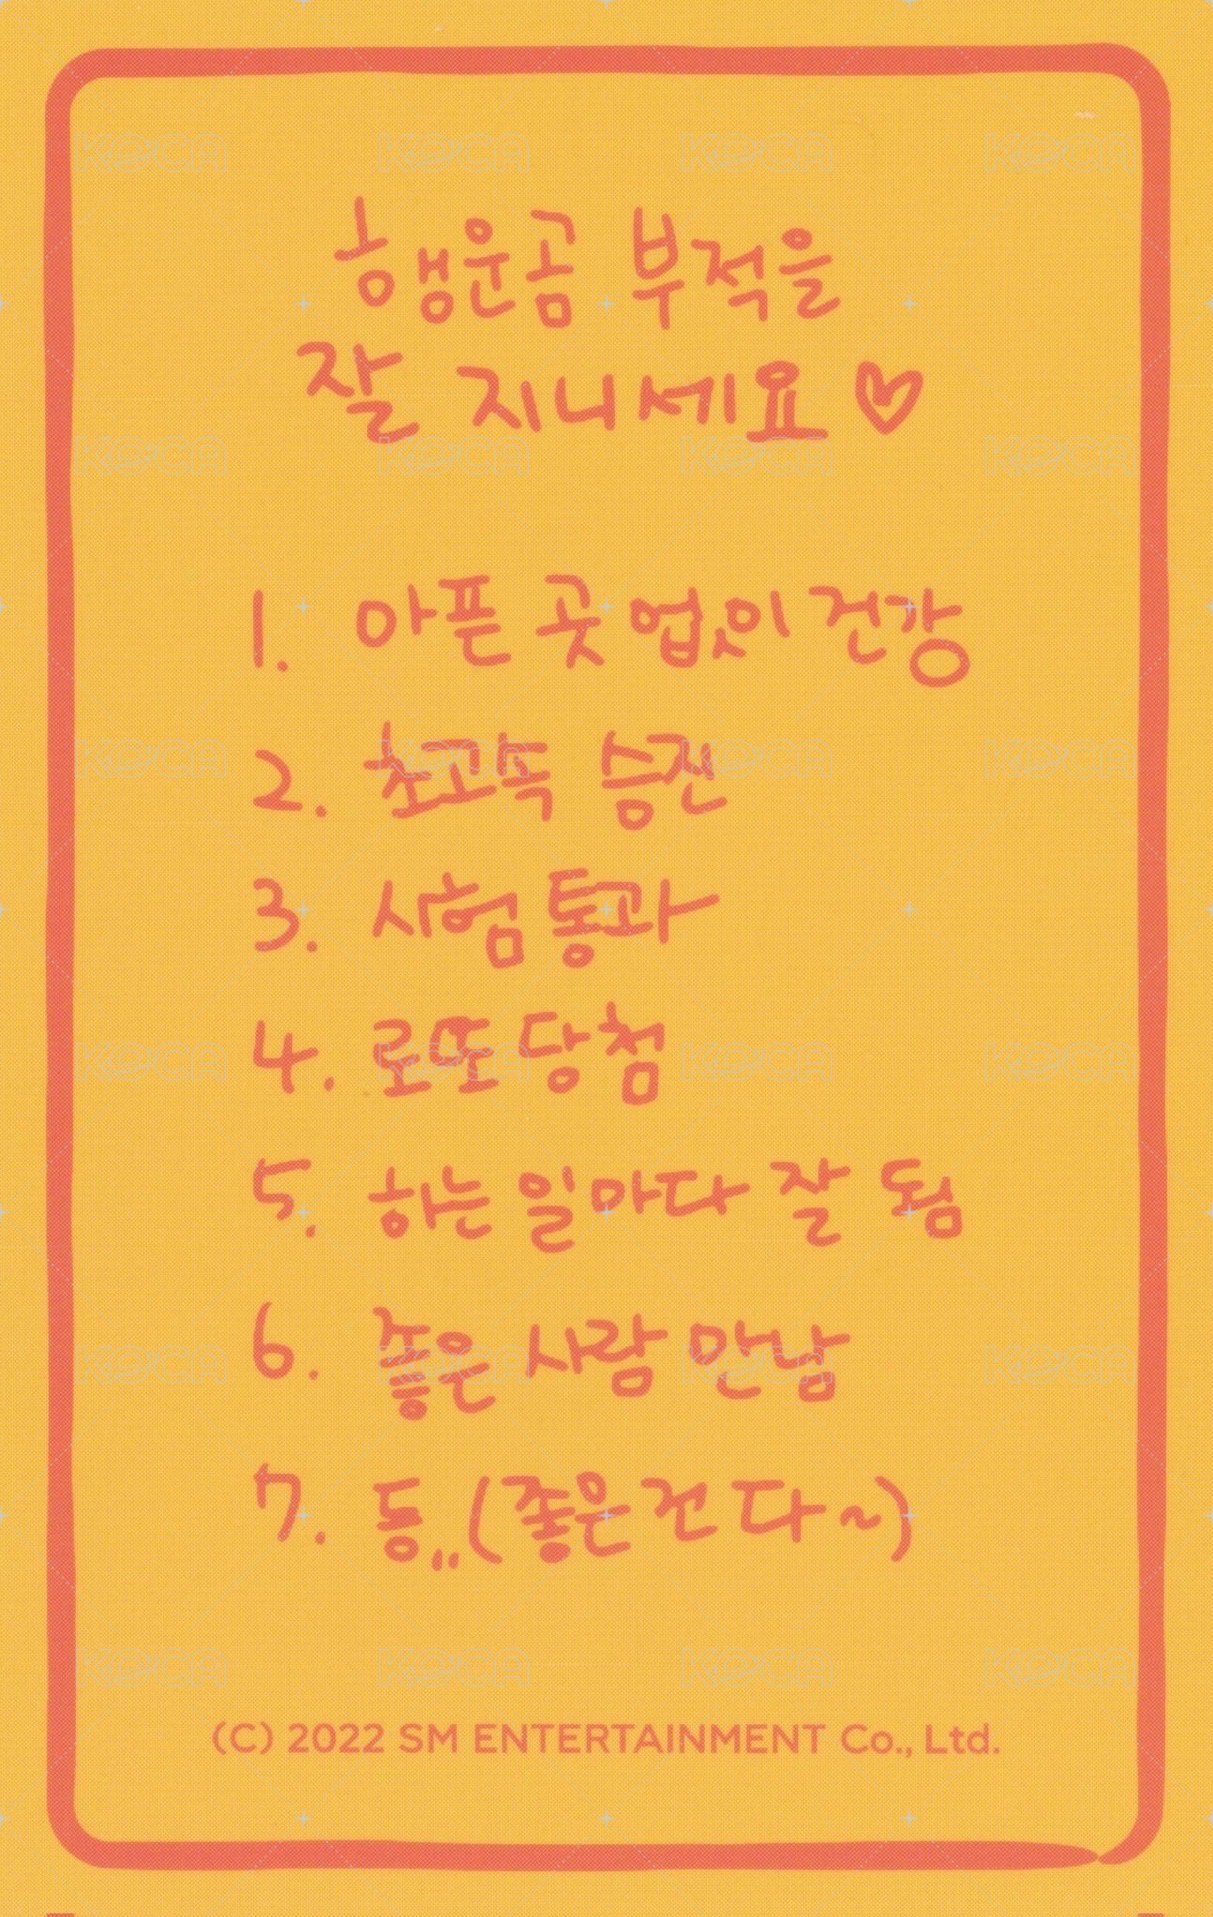 행운곰 부적을
잘 지니세요 ♡
1. 아픈 곳 없이 건강
2. 초고속 승진
3. 시험 통과
4. 로또 당첨
5. 하는 일마다 잘 됨
6. 좋은 사람 만남
7. 등.. (좋은 건 다~)
(C) 2022 SM ENTERTAINMENT Co., Ltd.